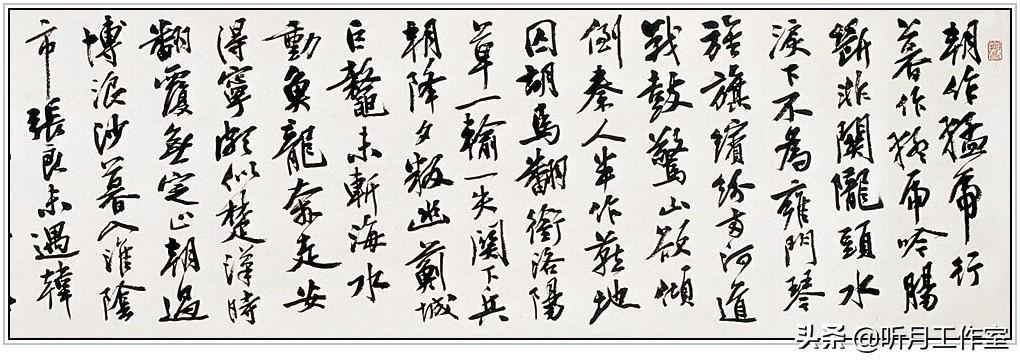 朝作猛虎行
暮作猛虎吟腸
斷非關隴頭水
淚下不為雍門琴
旌旗繽紛兩河道
戰鼓驚山欲傾
倒秦人半作燕地
囚胡馬翻銜洛陽
草一輸一失關下兵
朝降夕叛幽薊城
巨鼇未斬海水
動魚龍奔走安
得寧頗似楚漢時
翻覆無定止朝過
博浪沙暮入淮陰
市張良未遇韓
头条 @听月工作室